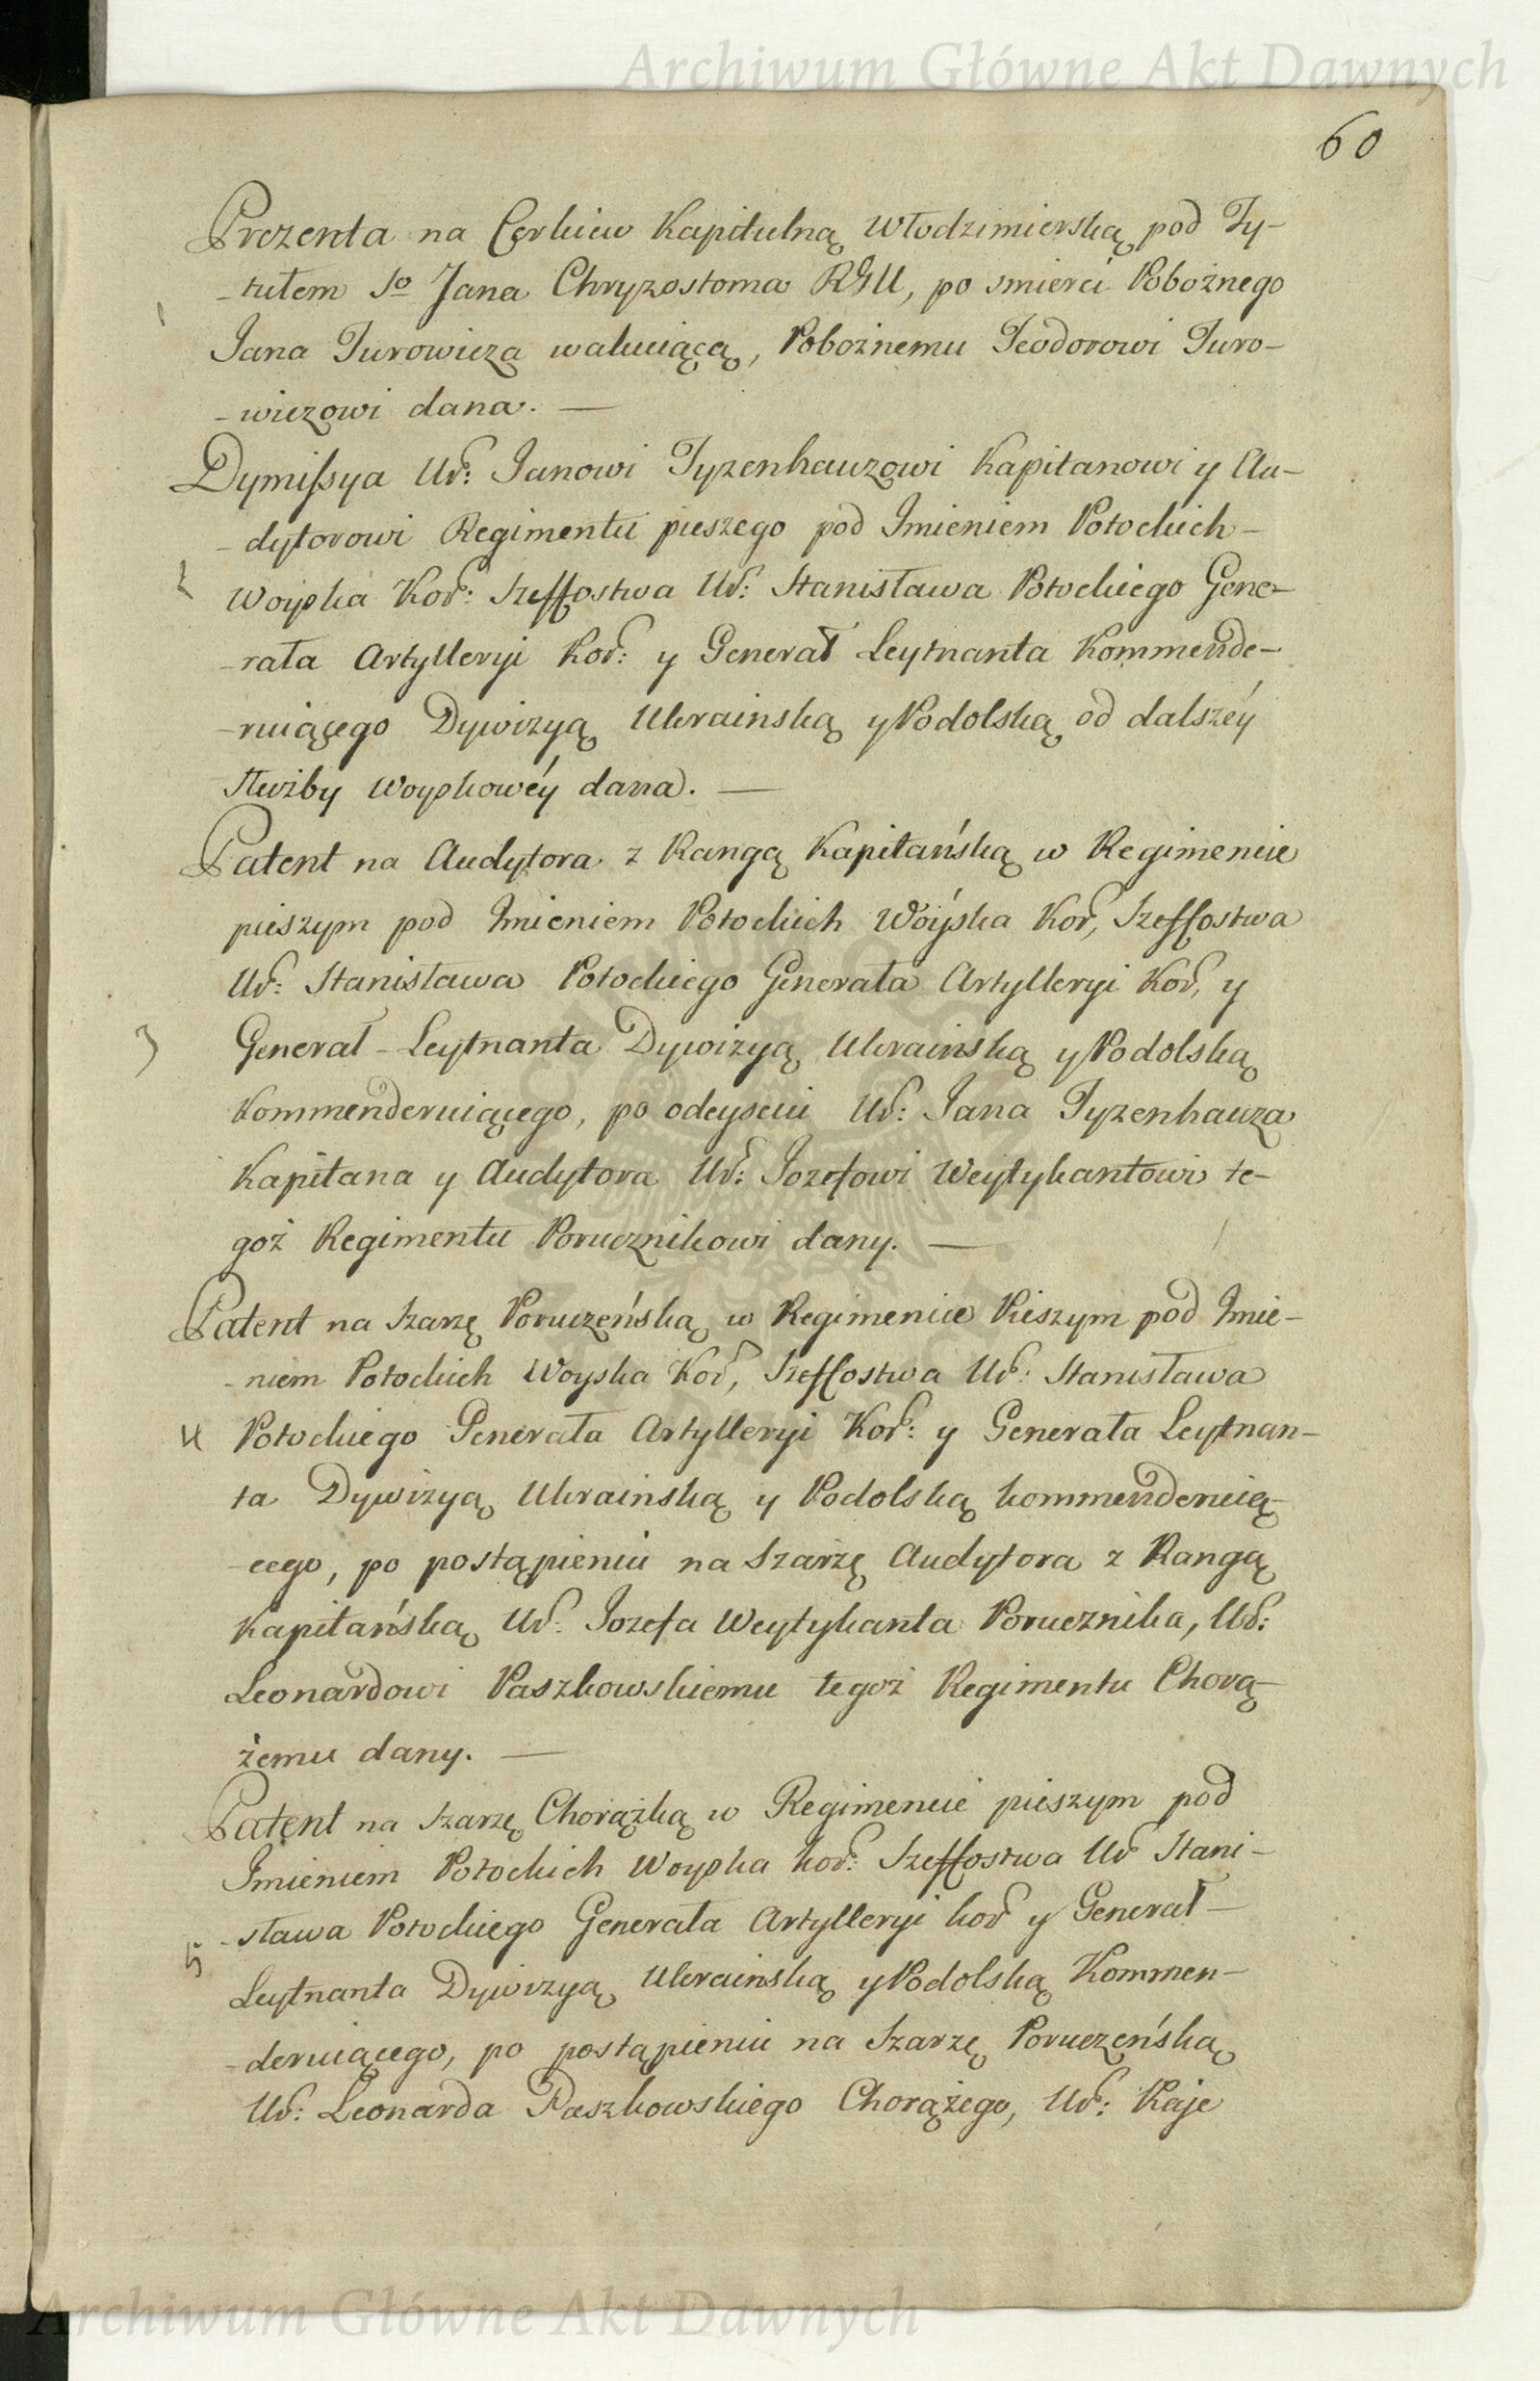 Archiwum Główne Akt Dawnych
60
Prezenta na Cerkiew Kapitulną Włodzimierską pod Ty-
-tułem So Jana Chryzostoma RGU, po smierci Pobożnego
1
Jana Turowicza wakuiącą, Pobożnemu Teodorowi Turo-
-wiczowi dana. —
Dymissya Ur: Janowi Tyzenhauzowi Kapitanowi y Au-
-dytorowi Regimentu pieszego pod Imieniem Potockich-
2
Woyska Kor: Szeffostwa Ur: Stanisława Potockiego Gene-
-rała Artylleryi Kor: y Generał Leytnanta Kommende-
-ruiącego Dywizyą Ukrainską y Podolską od dalszéy
Służby Woyskowéy dana. —
Patent na Audytora z Rangą Kapitańską w Regimencie
pieszym pod Imieniem Potockich Woyska Kor, Szeffostwa
Ur: Stanisława Potockiego Generała Artylleryi Kor, y
3
Generał-Leytnanta Dywizyą Ukrainską y Podolską
Kommenderuiącego, po odeysciu Ur: Jana Tyzenhauza
Kapitana y Audytora Ur: Jozefowi Weytykantowi te-
goż Regimentu Porucznikowi dany. —
Patent na Szarżę Poruczeńską w Regimencie Pieszym pod Imie-
-niem Potockich Woyska Kor, Szeffostwa Ur: Stanisława
4
Potockiego Generała Artylleryi Kor: y Generała Leytnan-
ta Dywizyą Ukrainską y Podolską kommenderuią-
-cego, po postąpieniu na Szarżę Audytora z Rangą
Kapitańską Ur: Jozefa Weytykanta Porucznika, Ur:
Leonardowi Paszkowskiemu tegoż Regimentu Chorą-
żemu dany. —
Patent na Szarżę Chorążką w Regimencie pieszym pod
Imieniem Potockich Woyska kor: Szeffostwa Ur Stani-
-sława Potockiego Generała Artylleryi kor y Generał-
5.
Leytnanta Dywizyą Ukrainską y Podolską Kommen-
-deruiącego, po postąpieniu na Szarżę Poruczeńską
Ur: Leonarda Paszkowskiego Chorążego, Ur: Kaje
Archiwum Główne Akt Dawnych